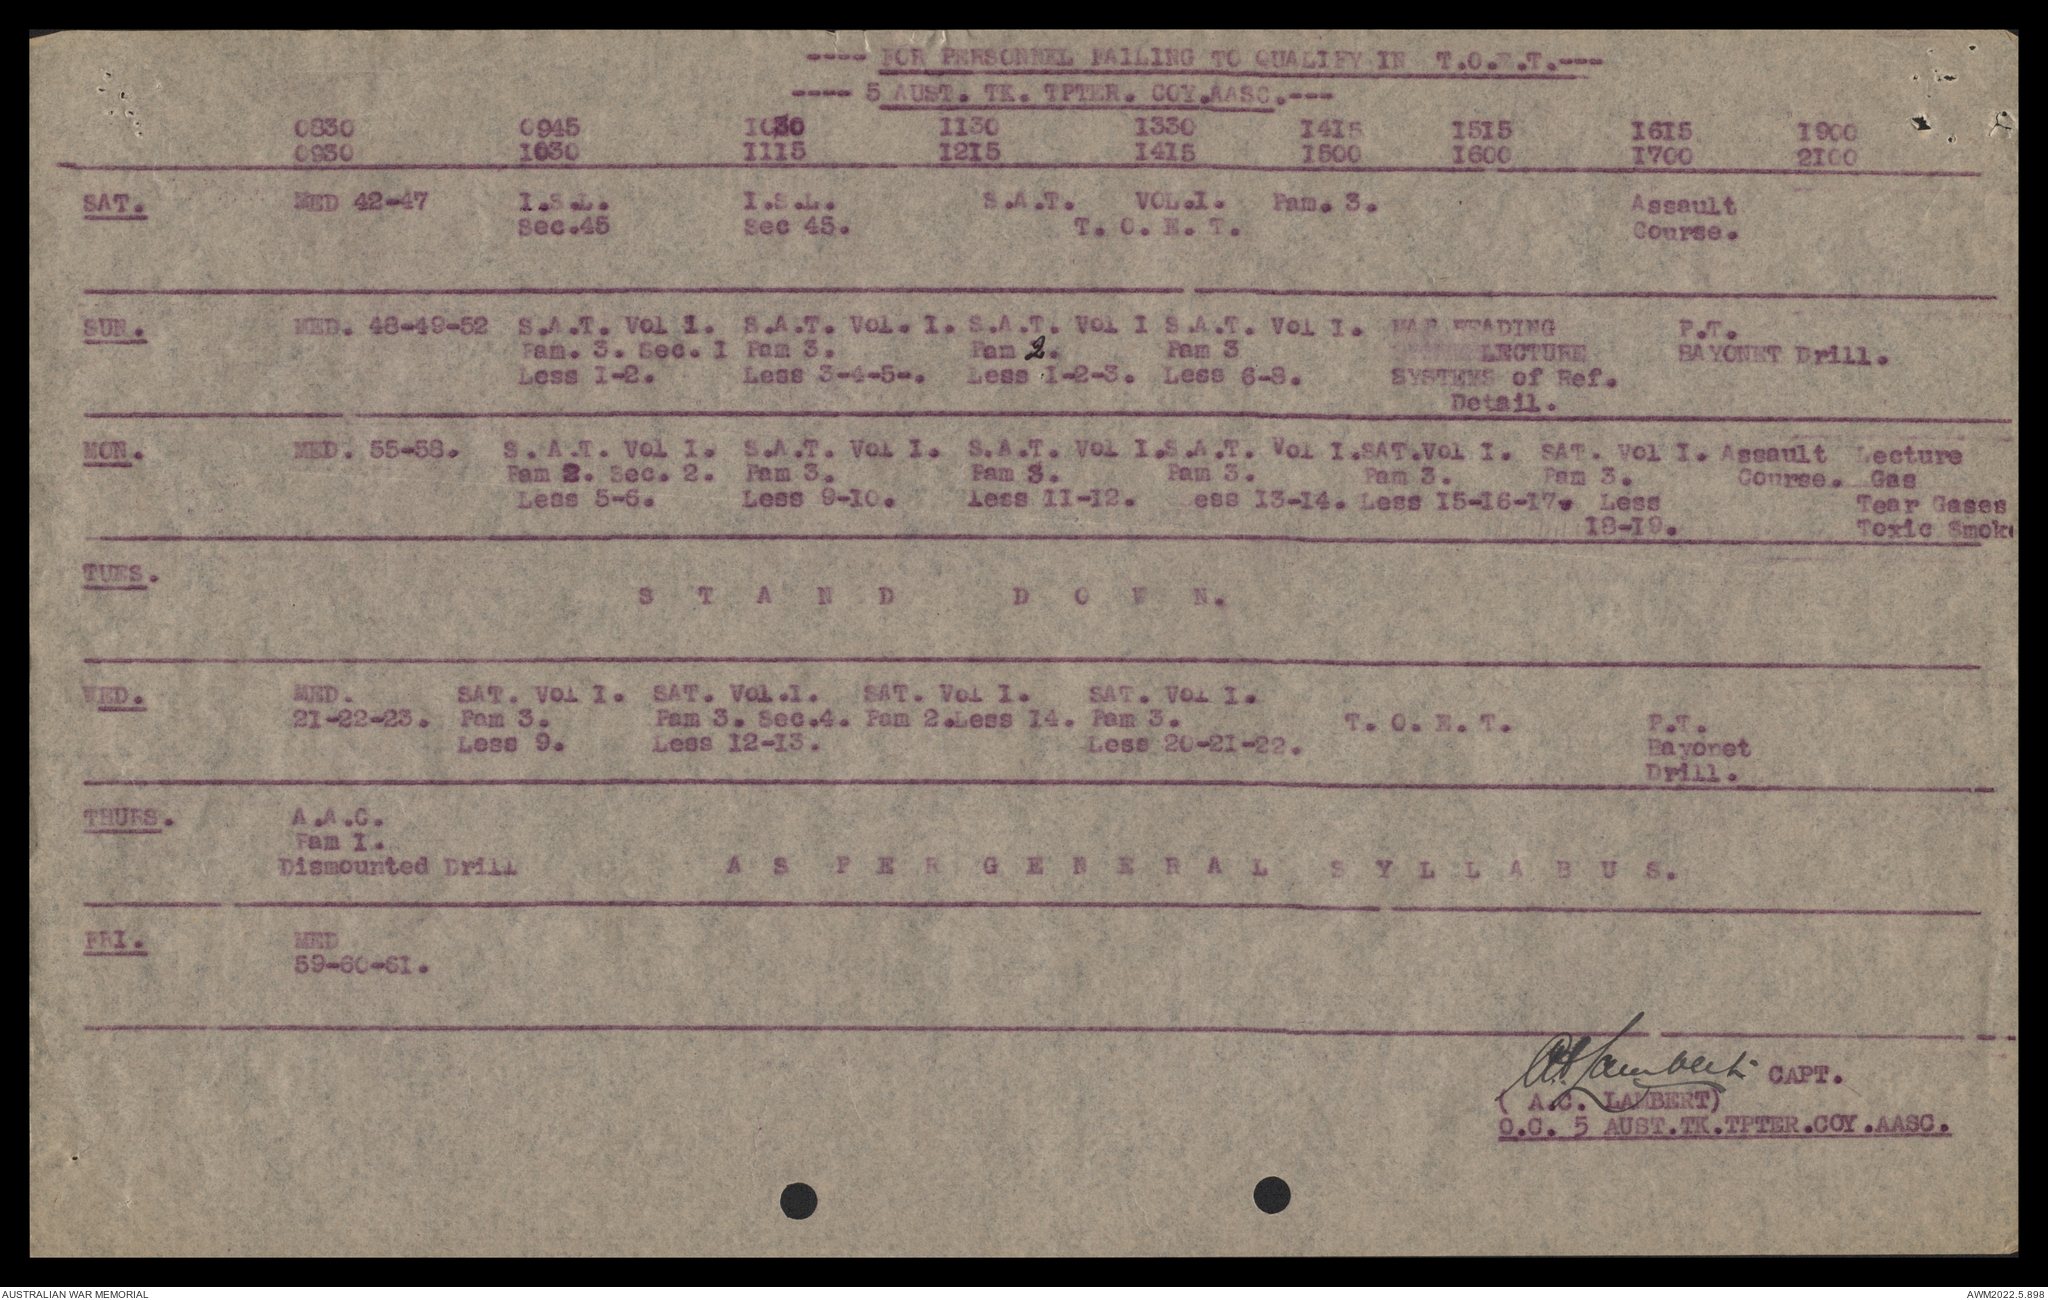 ---- FOR PERSONNEL FAILING TO QUALIFY IN T.O.E.T.---
---- 5 AUST. TK. TPTER. COY.AASC.---
0830 0945 1030 1130 1330 1415 1515 1615 1900
0930 1030 1115 1215 1415 1500 1600 1700 2100
SAT. MED 42-47 I.S.L. I.S.L. S.A.T. VOL.I. Pam. 3. Assault
Sec.45 Sec 45. T. O. E. T. Course.
SUN. MED. 48-49-52 S.A.T. Vol I. S.A.T. Vol. I. S.A.T. Vol I S.A.T. Vol I. MAP READING P.T.
Pam. 3. Sec. I Pam 3. Pam 2. Pam 3 LECTURE BAYONET Drill.
Less I-2. Less 3-4-5-. Less I-2-3. Less 6-8. SYSTEMS of Ref.
Detail.
MON. MED. 55-58. S.A.T. Vol I. S.A.T. Vol I. S.A.T. Vol I.S.A.T. Vol I.SAT.Vol I. SAT. Vol I. Assault Lecture
Pam 2. Sec. 2. Pam 3. Pam 3. Pam 3. Pam 3. Pam 3. Course. Gas
Less 5-6. Less 9-10. Less 11-12. ess 13-14. Less 15-16-17. Less Tear Gases
18-19. Toxic Smoke
TUES.
S T A N D D O W N.
WED. MED. SAT. Vol I. SAT. Vol.I. SAT. Vol I. SAT. Vol I.
21-22-23. Pam 3. Pam 3. Sec.4. Pam 2.Less 14. Pam 3. T. O. E. T. P.T.
Less 9. Less 12-13. Less 20-21-22. Bayonet
Drill.
THURS. A.A.C.
Pam I.
Dismounted Drill A S P E R G E N E R A L S Y L L A B U S.
FRI. MED
59-60-61.
A.C. Lambert CAPT.
( A.C. LAMBERT)
O.C. 5 AUST.TK.TPTER.COY.AASC.
AUSTRALIAN WAR MEMORIAL AWM2022.5.898